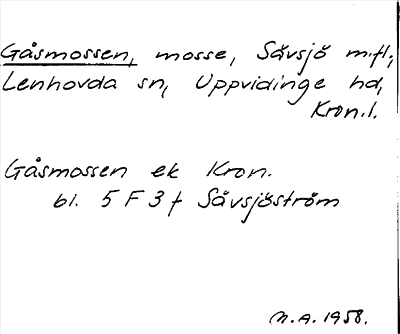 Gåsmossen, mosse, Sävsjö m.fl.,
Lenhovda sn, Uppvidinge hd,
Kron.l.
Gåsmossen ek Kron.
bl. 5 F 3 f Sävsjöström
M.A. 1958.